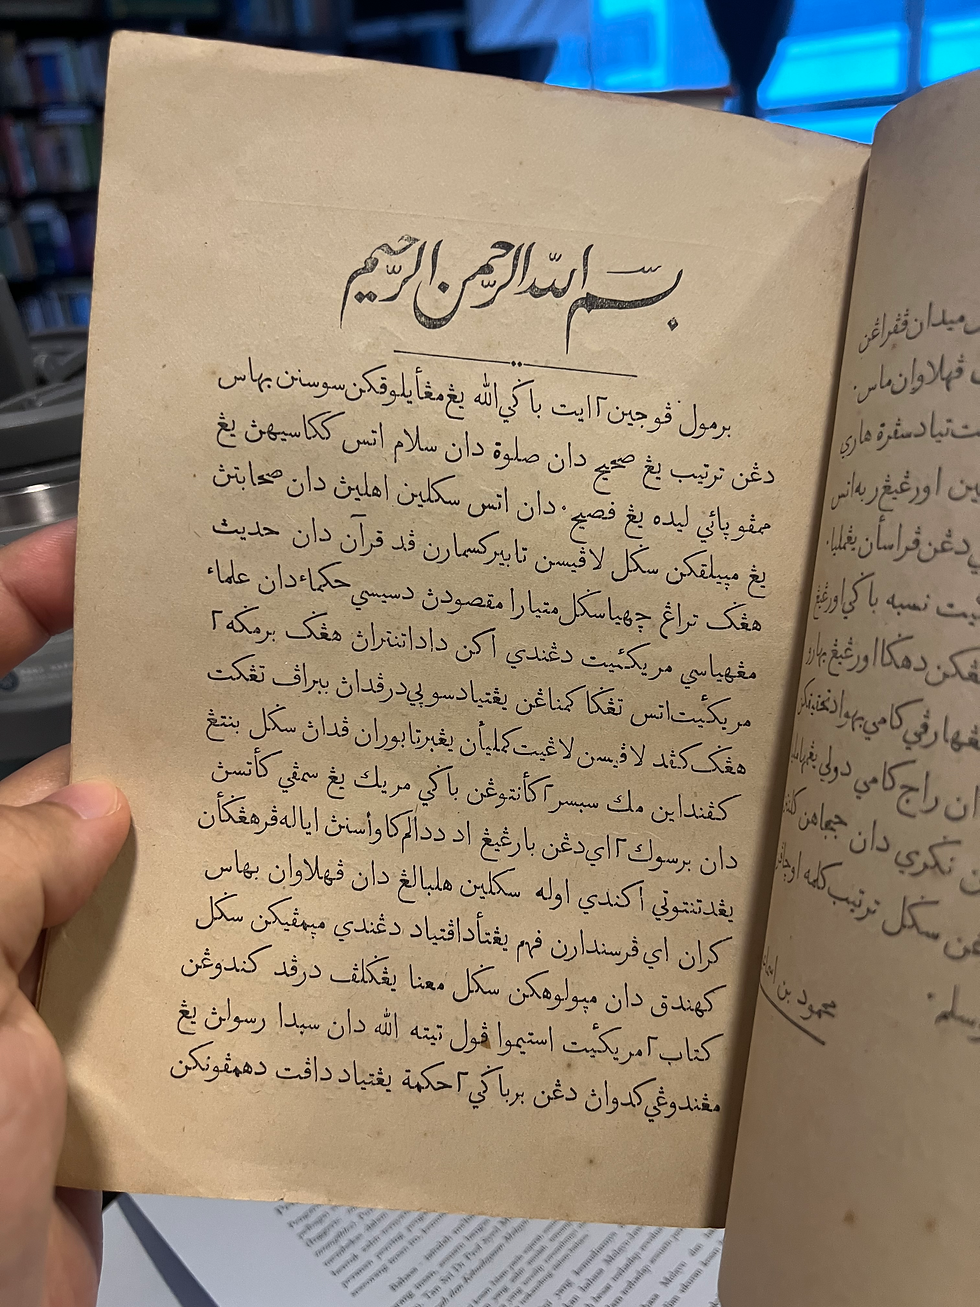 بسم الله الرحمن الرحيم
برمول ڤوجين٢ ايت باݢي الله يڠ مڠأيلوقكن سوسنن بهاس
دڠن ترتيب يڠ صحيح دان صلوة دان سلام اتس ككاسيهڽ يڠ
ممڤوڽائي ليده يڠ فصيح٠ دان اتس سكلين اهليڽ دان صحابتڽ
يڠ مڽيلقكن سݢل لاڤيسن تابير كسمارن ڤد قرآن دان حديث
هڠݢ تراڠ چهياسݢل متيارا مقصودڽ دسيسي حكماء دان علماء
مڠهياسي مريكئيت دڠندي اكن دادا تنتراڽ هڠݢ برمݢه٢
مريكئيت اتس تڠݢا كمناڠن يڠتياد سوڽي درڤدان ببراڤ تڠكت
هڠݢ كڤد لاڤيسن لاڠيت كمليأن يڠبرتابوران ڤداڽ سݢل بنتڠ
كڤنداين مك سبسر٢ كأنتوڠن باݢي مريك يڠ سمڤي كأتسڽ
دان برسوك٢ اي دڠن بارڠيڠ اد ددالم كاوأسنڽ اياله ڤرهڠݢأن
يڠدتنتوتي اكندي اوله سكلين هلبالڠ دان ڤهلاوان بهاس
كران اي ڤرسندارن فهم يڠتأداڤتياد دڠندي مڽمڤيكن سݢل
كهندق دان مڽولوهكن سݢل معنا يڠݢلڤ درڤد كندوڠن
كتاب٢ مريكئيت استيموا ڤول تيته الله دان سبدا رسولڽ يڠ
مڠندوڠي كدواڽ دڠن برباݢي٢ حكمة يڠتياد داڤت دهمڤونكن
ميدان ڤڤراڠن
ڤهلاوان ماس٠
تياد سڤرة هاري
اورڠيڠ ربه اتس
دڠن ڤراسأن يڠمليا٠
نسبه باݢي اورڠيڠ
دان راج كامي دولي
نݢري دان
سݢل ترتيب كلمه
وسلم٠
محمود بن